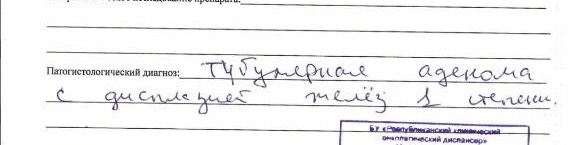 исследование препарата:
Патогистологический диагноз: Тубулярная аденома
с дисплазией желёз 1 степени.
БУ «Республиканский клинический
онкологический диспансер»